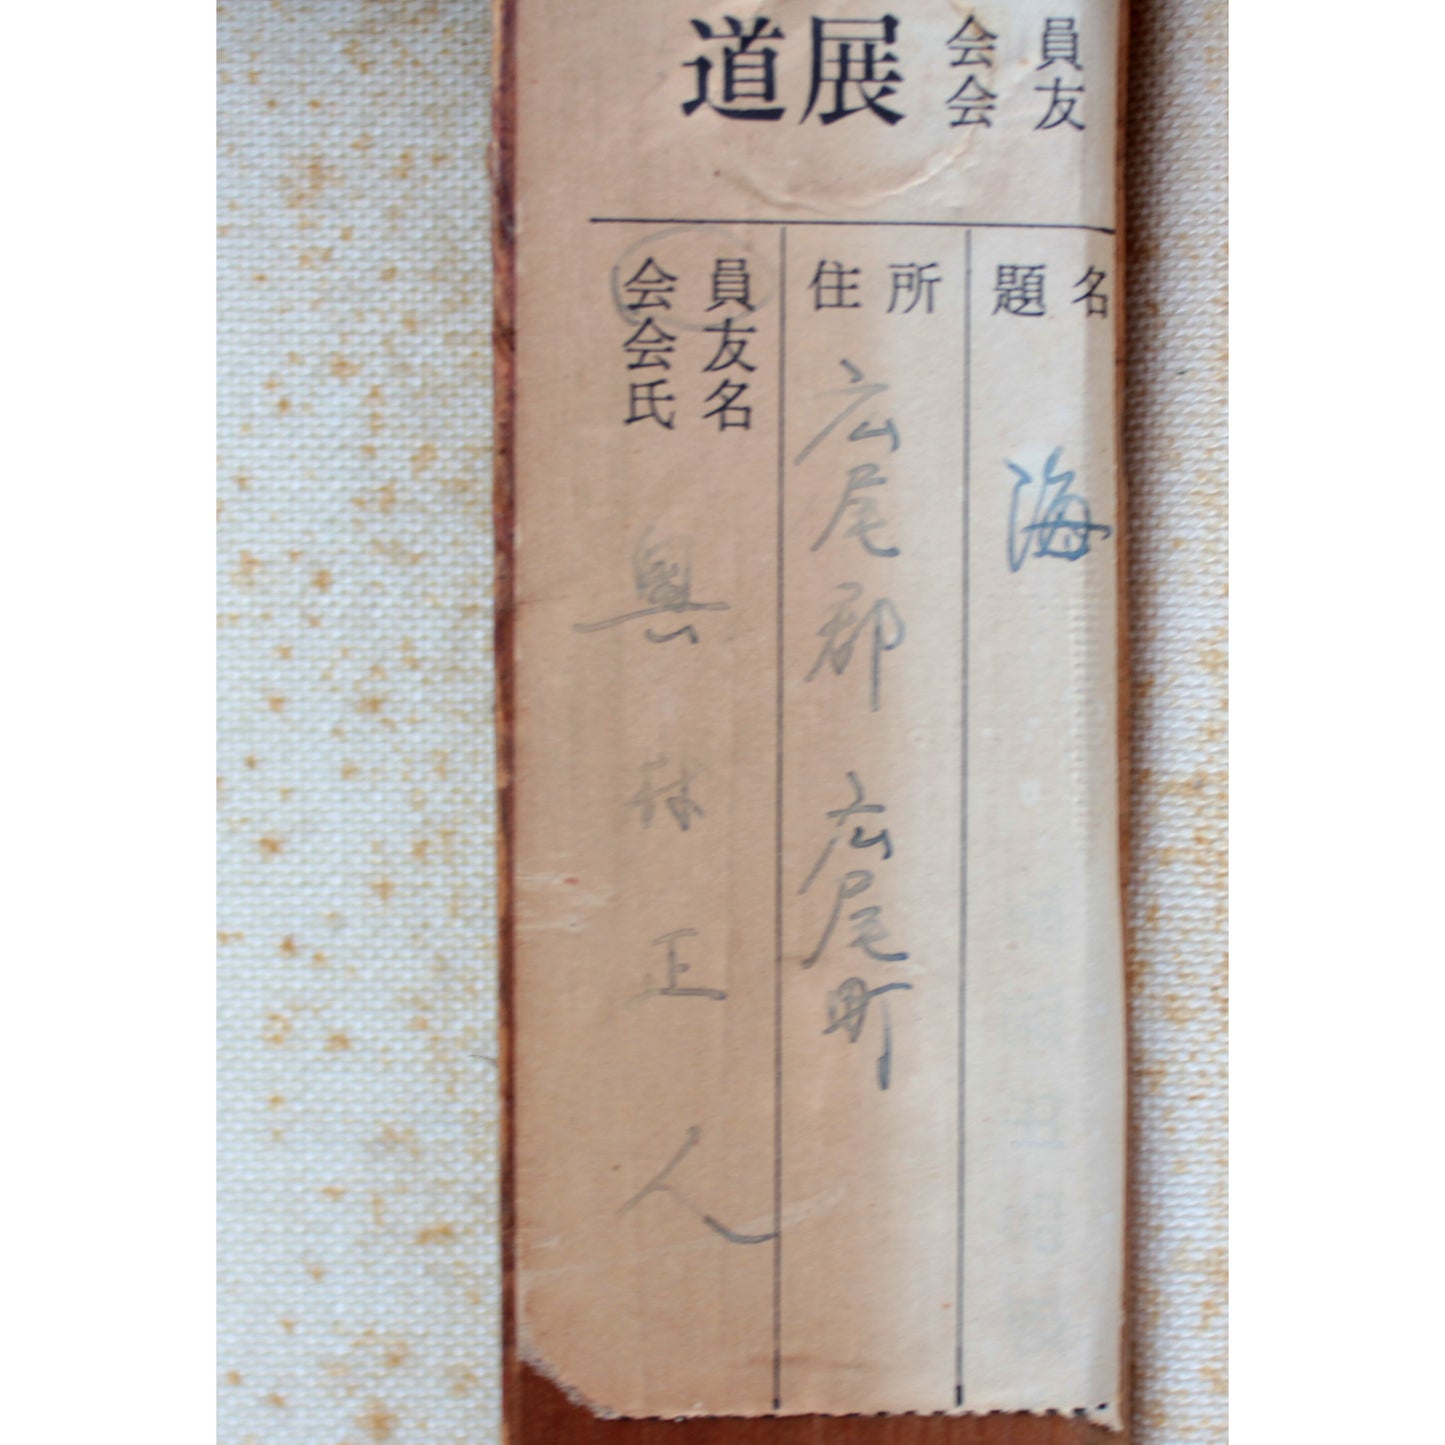 道展 会員
会友
題名 海
住所 広尾郡広尾町
会員
会友
氏名 正人